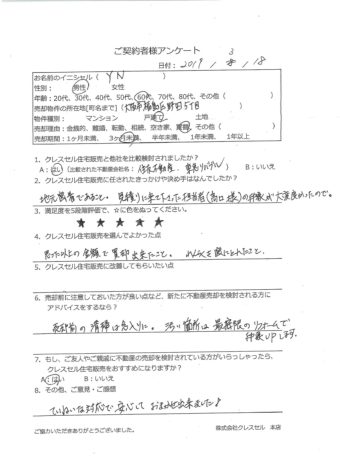 ご契約者様アンケート 3
日付： 2019 / / 18
お名前のイニシャル（ YN ）
性別： 男性 女性
年齢：20代、30代、40代、50代、60代、70代、80代、その他（ ）
売却物件の所在地[町名まで]（大阪市 区野田5丁目 ）
物件種別： マンション 戸建て 土地
売却理由：金銭的、離婚、転勤、相続、空き家、買替、その他（ ）
売却期間：1ヶ月未満、3ヶ月未満、半年未満、1年未満、1年以上
1．クレスセル住宅販売と他社を比較検討されましたか？
A：はい（比較された不動産会社名： 住友不動産、東急リバブル ） B：いいえ
2．クレスセル住宅販売に任されたきっかけや決め手はなんでしたか？
地元業者であること。見積りに来て下さった担当者( 様)の印象が大変良かったので。
3．満足度を5段階評価で、☆に色をぬってください。
★ ★ ★ ★ ★
4．クレスセル住宅販売を選んでよかった点
思った以上の金額で売却出来たこと。 して とれたこと。
5．クレスセル住宅販売に改善してもらいたい点
6．売却前に注意しておいた方が良い点など、新たに不動産売却を検討される方に
アドバイスをするなら？
売却前の清掃は念入りに。汚い箇所は最低限のリフォームで
印象UPします。
7．もし、ご友人やご親戚に不動産の売却を検討されている方がいらっしゃったら、
クレスセル住宅販売をおすすめになりますか？
A：はい B：いいえ
8．その他、ご意見・ご感想
ていねいな対応で安心しておまかせ出来ました♪
ご協力いただきありがとうございました。 株式会社クレスセル 本店